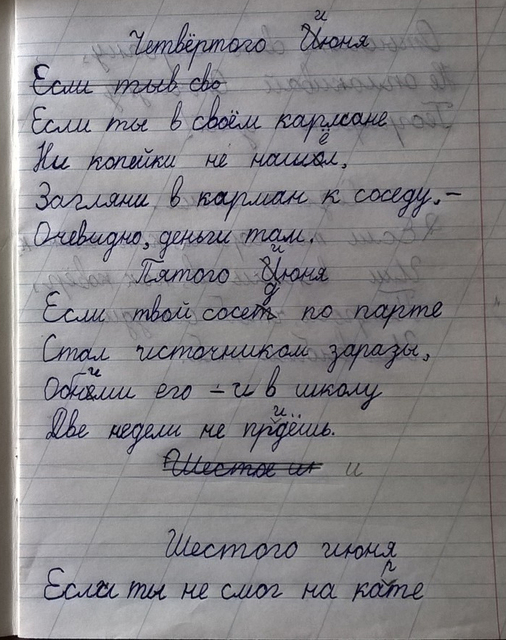 Четвёртого Июня
Если тыв сво
Если ты в своём кармане
Ни копейки не нашёл,
Загляни в карман к соседу, –
Очевидно, деньги там.
Пятого Июня
Если твой сосед по парте
Стал источником заразы,
Обними его – и в школу
Две недели не придёшь.
Шестое ию и
Шестого июня
Если ты не смог на карте